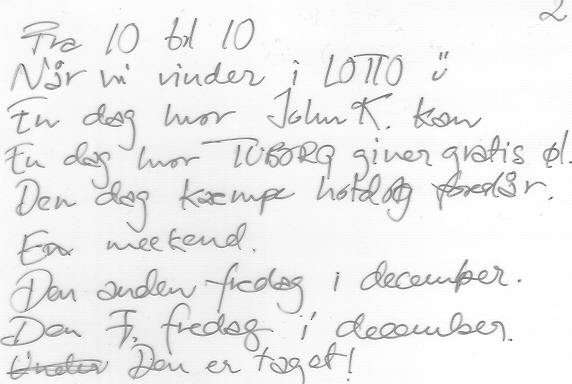 2
Fra 10 til 10
Når vi vinder i LOTTO ü
En dag hvor John K. kan
En dag hvor TUBORG giver gratis øl.
Den dag kæmpe hotdog
En weekend.
Den anden fredag i december.
Den 7. fredag i december.
Under Den er taget!